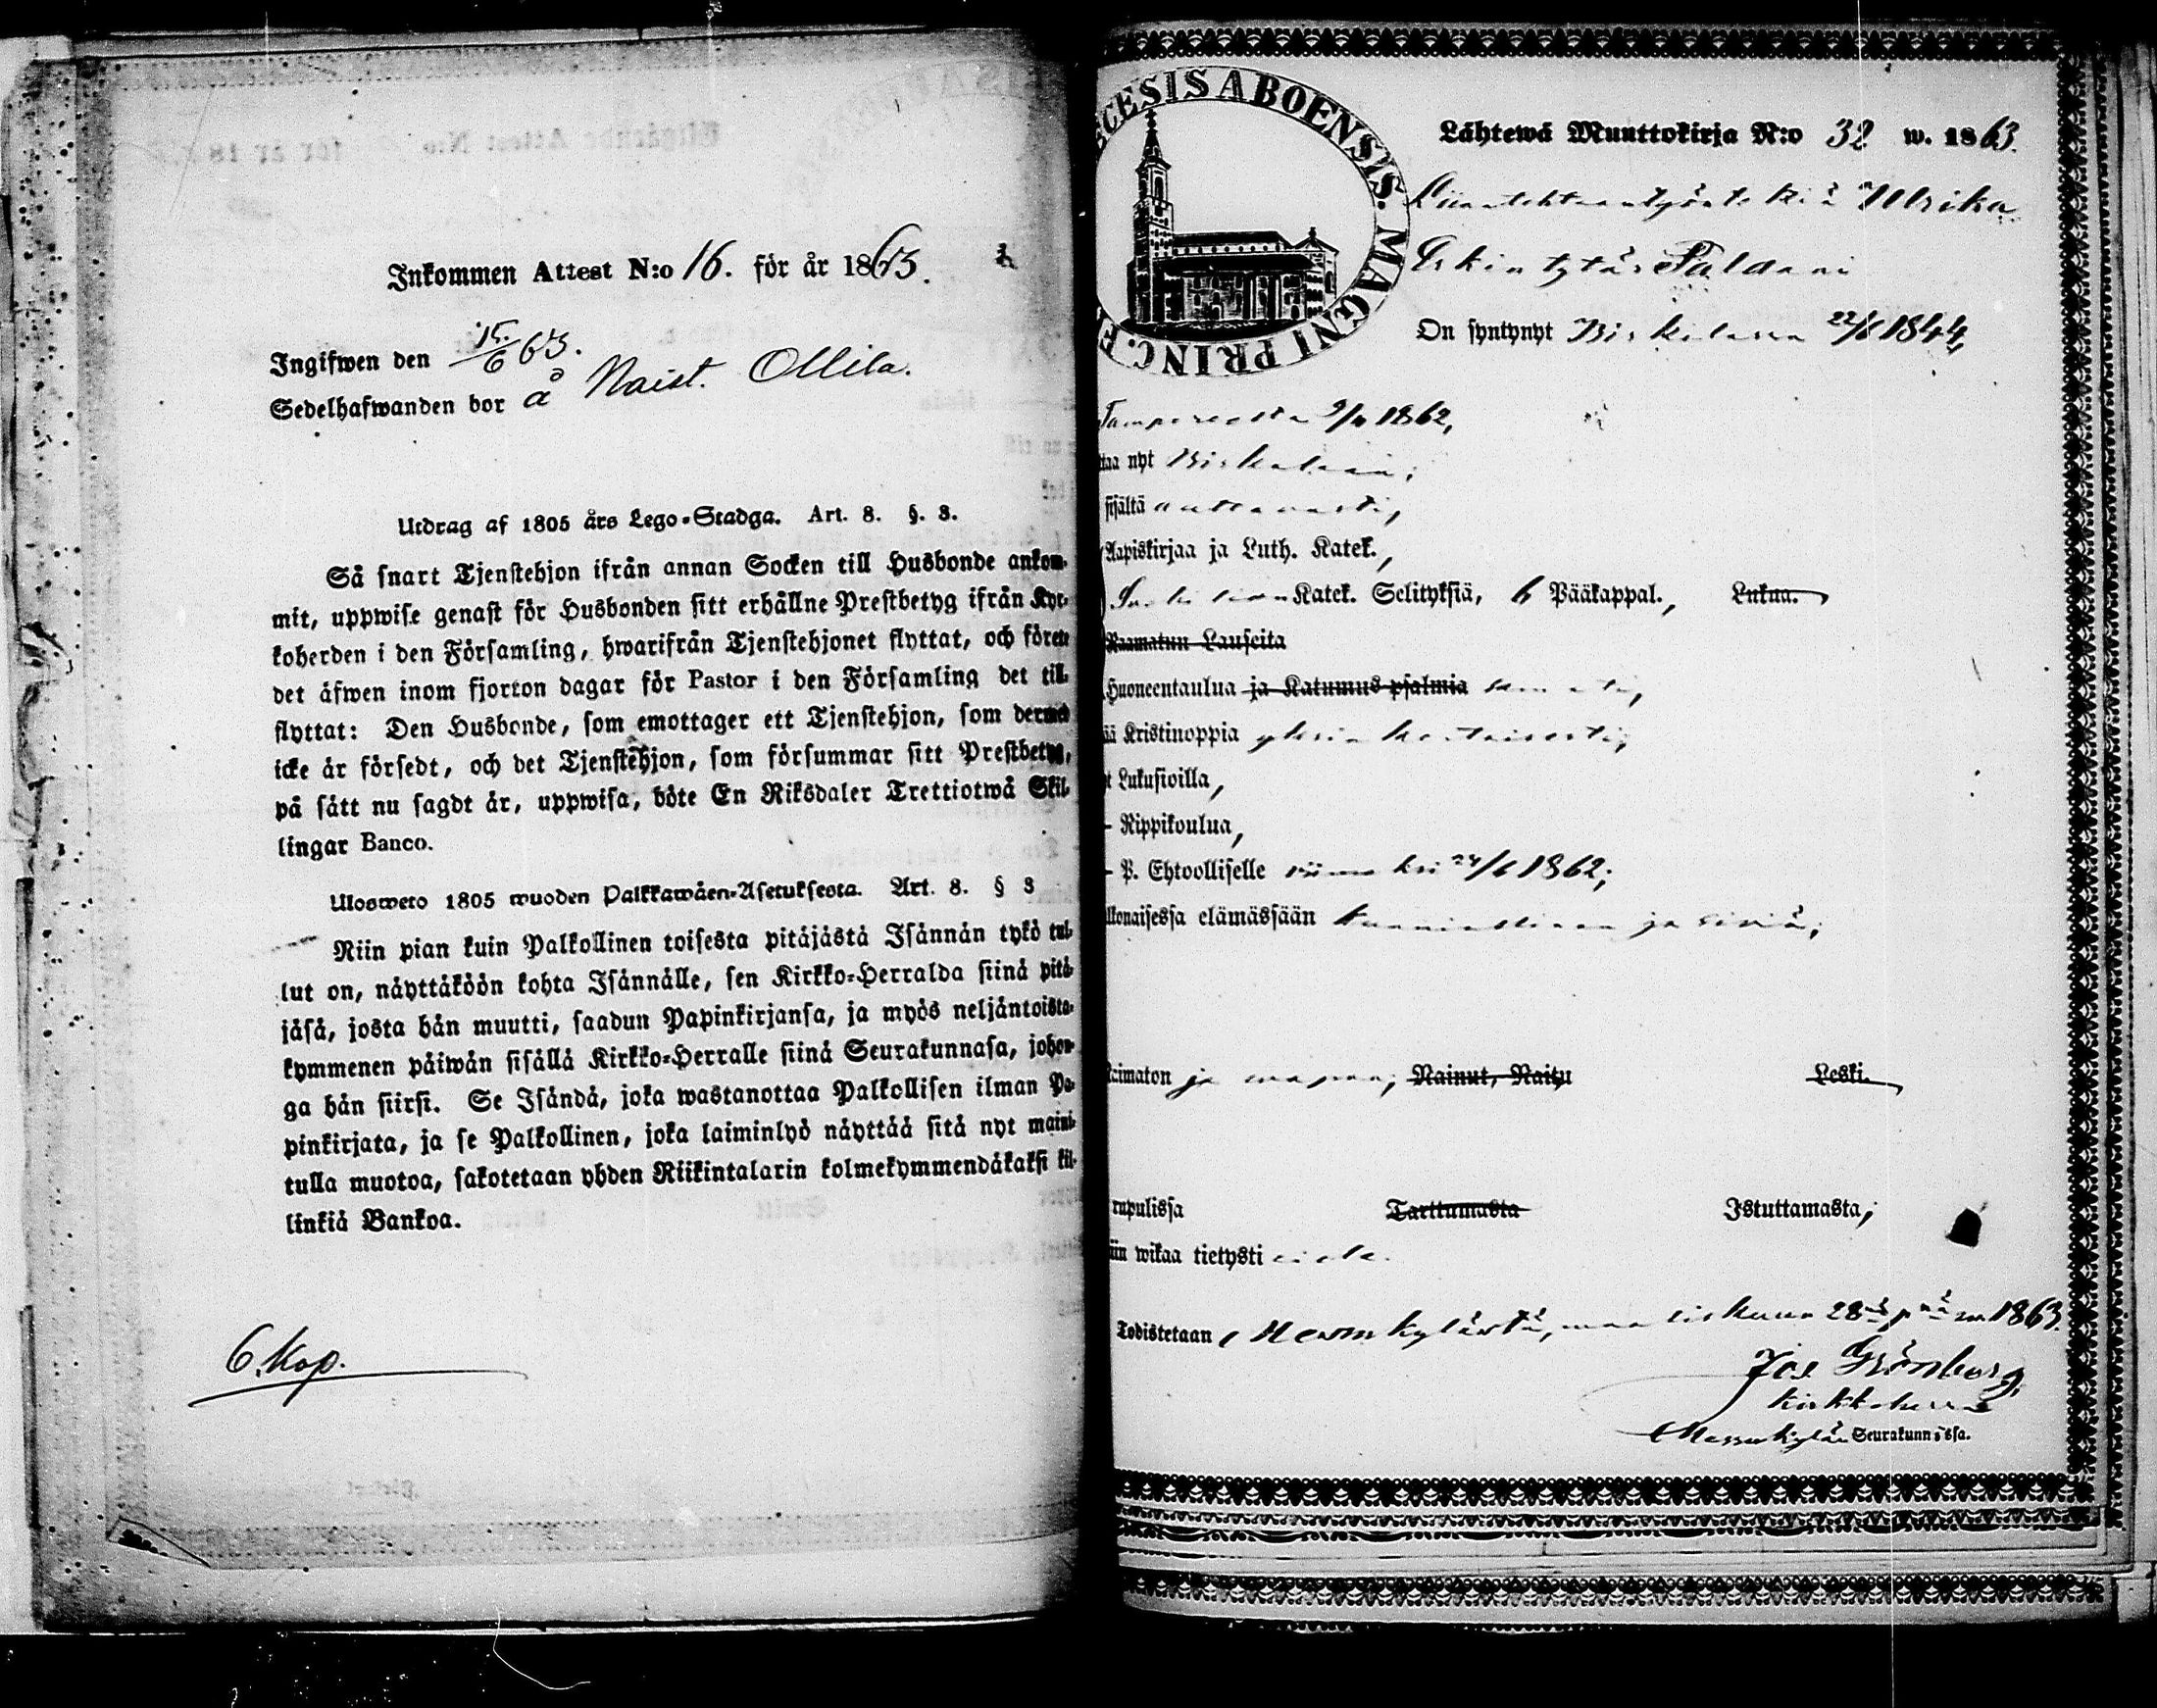 Inkommen Attest N:o 16. för år 1863.
Ingifwen den 15/6 63.
Sedelhafwanden bor å Naist. Ollila.
Utdrag af 1805 års Lego-Stadga. Art. 8. §. 3.
Så snart Tjenstehjon ifrån annan Socken till Husbonde ankom-
mit, uppwise genast för Husbonden sitt erhållne Prestbetyg ifrån Kyr-
koherden i den Församling, hwarifrån Tjenstehjonet flyttat, och förete
det äfwen inom fjorton dagar för Pastor i den Församling det till-
flyttat: Den Husbonde, som emottager ett Tjenstehjon, som dermed
icke är försedt, och det Tjenstehjon, som försummar sitt Prestbetyg,
på sätt nu sagdt är, uppwisa, böte En Riksdaler Trettiotwå Skil-
lingar Banco.
Ulosweto 1805 wuoden Palkkawäen-Asetuksesta. Art. 8. § 3
Niin pian kuin Palkollinen toisesta pitäjästä Isännän tykö tul-
lut on, näyttäköön kohta Isännälle, sen Kirkko-Herralda siinä pitä-
jäsä, josta hän muutti, saadun Papinkirjansa, ja myös neljäntoista-
kymmenen päiwän sisällä Kirkko-Herralle siinä Seurakunnasa, johon-
ga hän siirsi. Se Isändä, joka wastanottaa Palkollisen ilman Pa-
pinkirjata, ja se Palkollinen, joka laiminlyö näyttää sitä nyt maini-
tulla muotoa, sakotetaan yhden Riikintalarin kolmekymmendäkaksi kil-
linkiä Bankoa.
6 Kop.
ECESIS ABOENSIS. MAGNI PRINC. F
Lähtewä Muuttokirja N:o 32 w. 1863.
Ulrika
Erkintytär Paldani
On syntynyt Birkalassa 22/6 1844,
Tampereelta 9/11 1862,
taa nyt Birkalaan;
sisältä auttawasti,
Aapiskirjaa ja Luth. Katek.,
Katek. Selityksiä, 6 Pääkappal., Lukua.
Raamatun Lauseita
Huoneentaulua ja Katumus psalmia
iä Kristinoppia yksinkertaisesti,
t Lukusioilla,
- Rippikoulua,
- P. Ehtoolliselle wiimeksi 24/6 1862;
lkonaisessa elämässään kunniallinen ja siwiä;
aimaton ja wapaa; Nainut, Naitu Leski.
rupulissa Tarttumasta Istuttamasta;
iin wikaa tietysti ei ole.
Todistetaan, Messukylästä, maaliskuun 28nä pnä w. 1863.
Jos Grönberg,
Kirkkoherra
Messukylän Seurakunnassa.